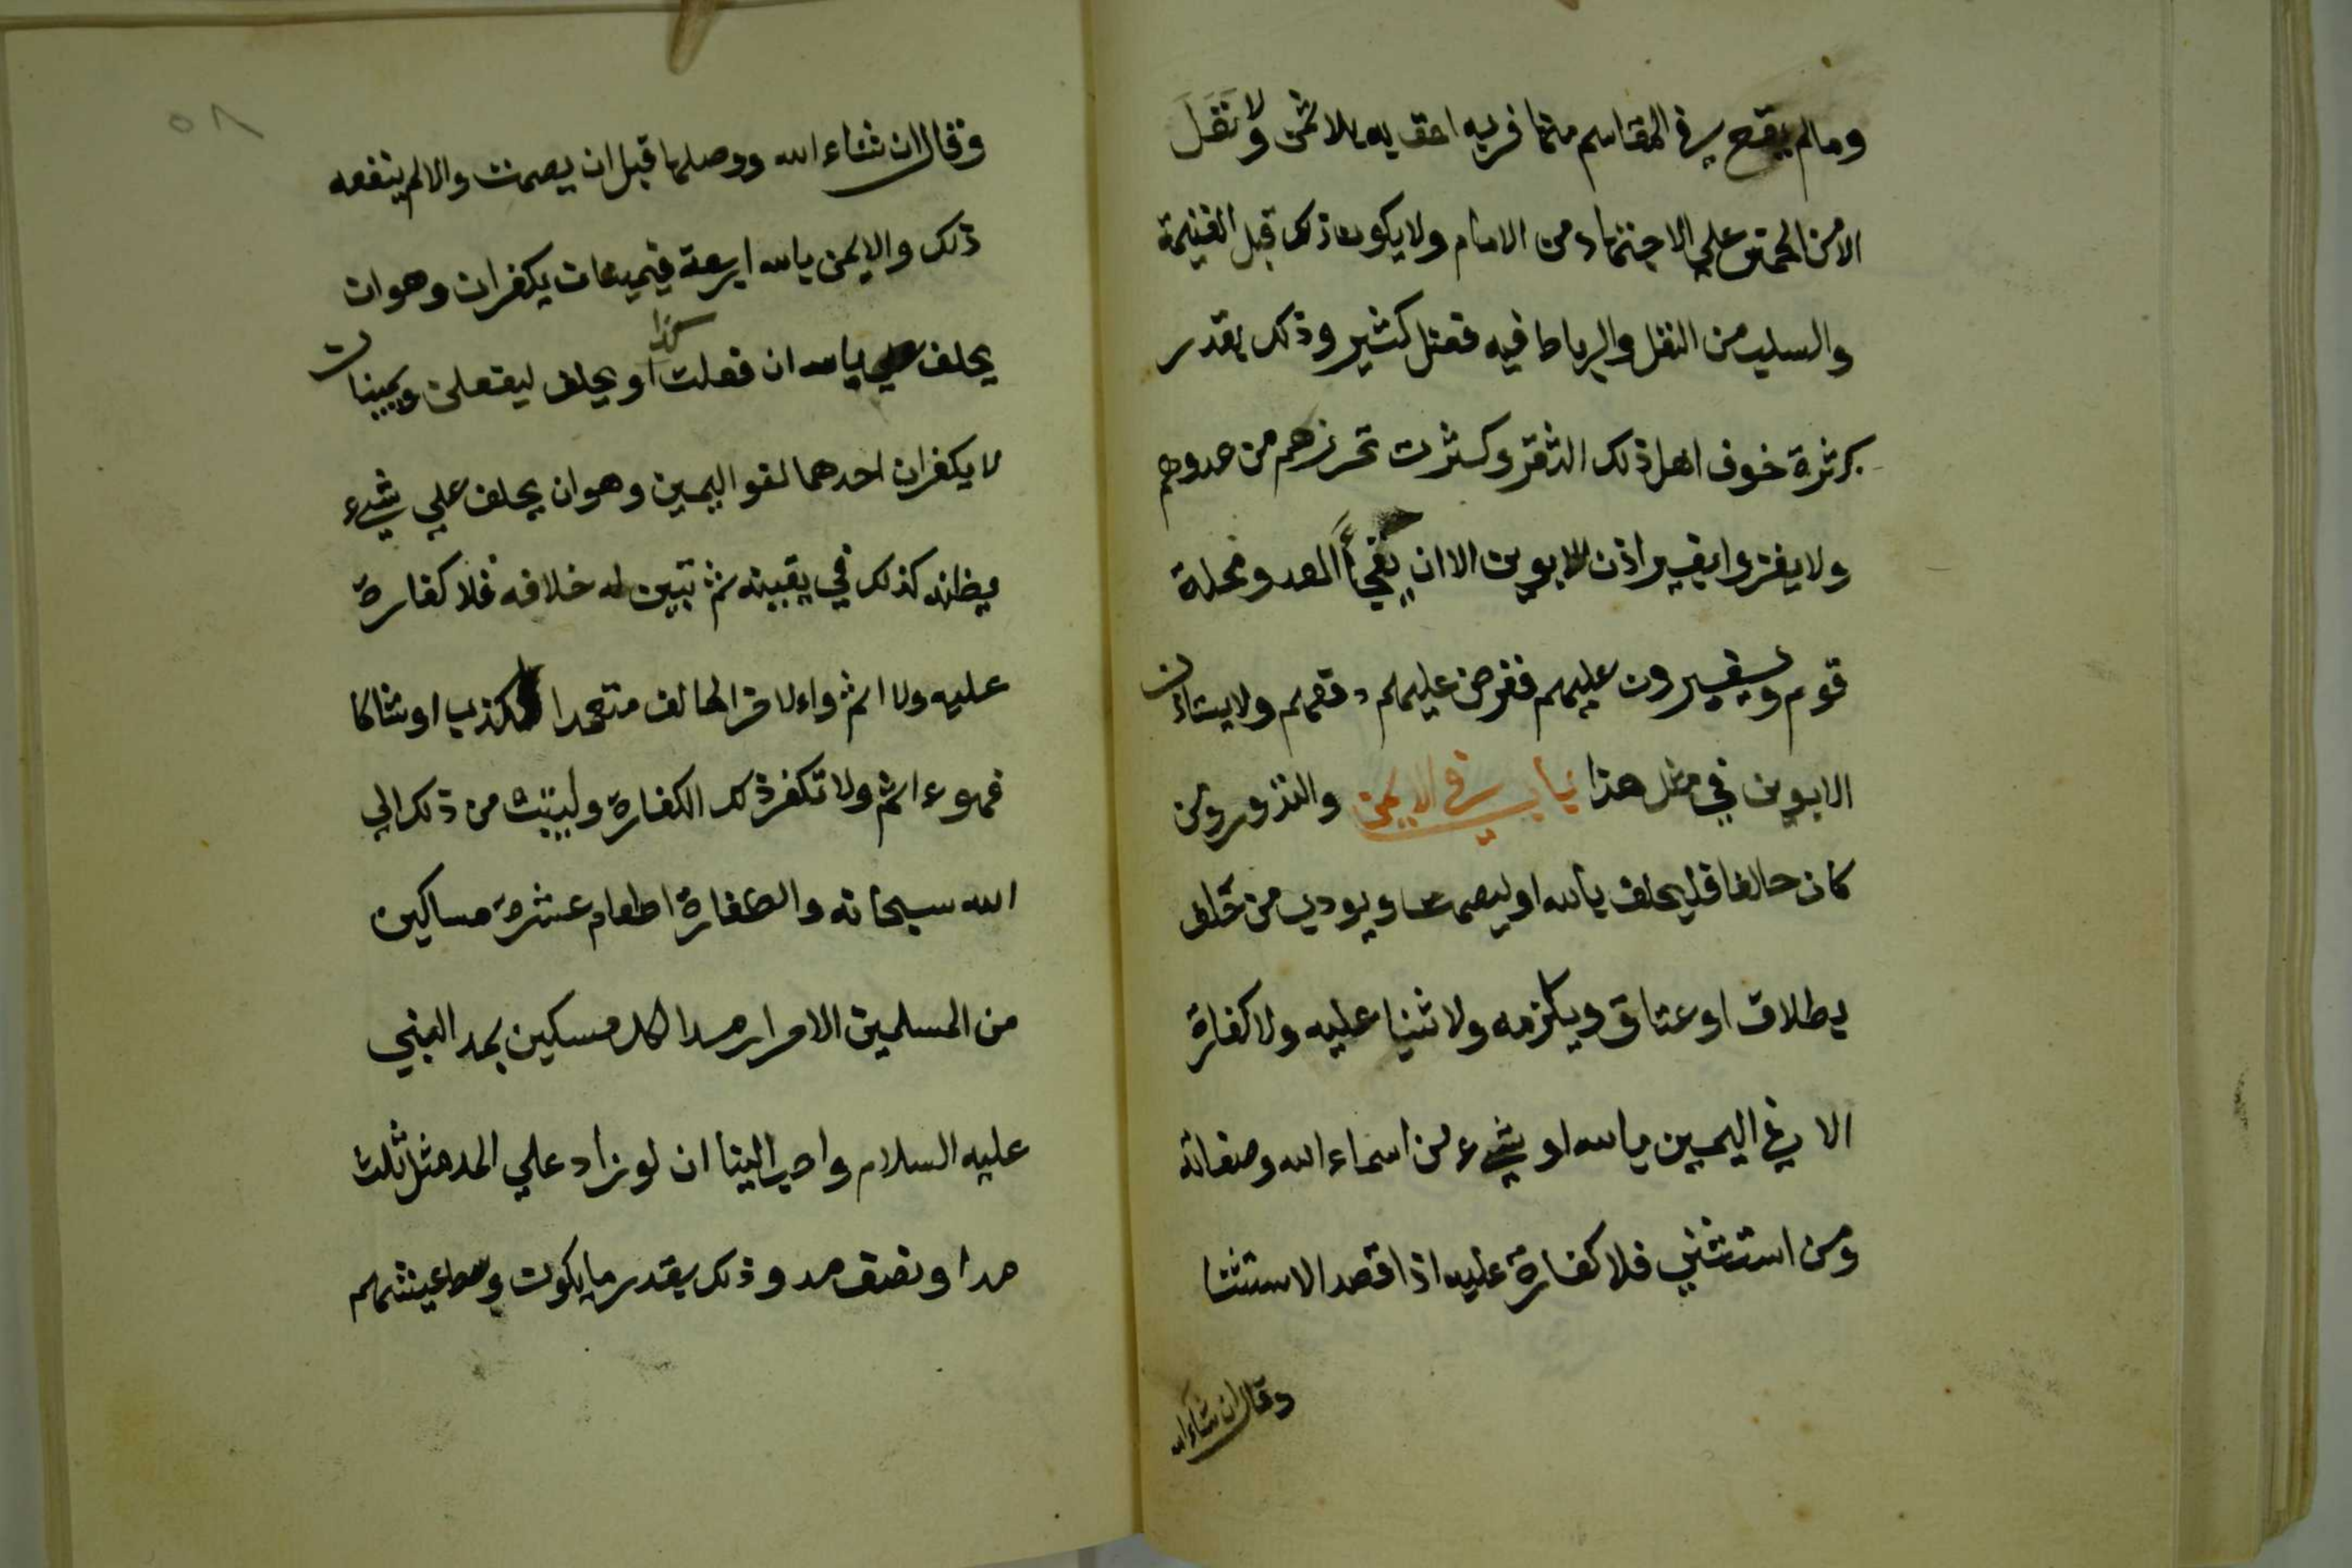 ومالم يقع في المقاسم منها فربه احق به بلا ثمن ولا نَفَلَ
الا من الخمس علي الاجتهاد من الامام ولا يكون ذلك قبل الغنيمة
والسلب من النفل والرباط فيه فضل كثير وذلك بقدر
كثرة خوف اهل ذلك الثغر وكثرت تحرزهم من عدوهم
ولا يغزوا بغير اذن الابوين الا ان يفجأ العدو محلة
قوم ويغيرون عليهم ففرض عليهم دفعهم ولا يستاذن
الابوين في مثل هذا باب في الايمن والنذور ومن
كان حالفا فليحلف بالله او ليصمت ويودب من حَلف
بطلاق او عتاق ويلزمه ولا ثنيا عليه ولا كفارة
الا في اليمين بالله او بشيء من اسماء الله وصفاته
ومن استثني فلا كفارة عليه اذا قصد الاستثنا
وقال ان شاء الله
٥٨
وقال ان شاء الله ووصلها قبل ان يصمت والا لم ينفعه
ذلك والايمن بالله اربعة فيمينان يكفران وهو ان
يحلف بالله ان فعلت كذا او يحلف ليفعلن ويمينان
لا يكفران احدهما لغو اليمين وهو ان يحلف علي شيء
يظنه كذلك في يقينه ثم تبين له خلافه فلا كفارة
عليه ولا اثم والاخر الحالف متعمدا لكذب او شاكا
فهو ءاثم ولا تكفر ذلك الكفارة وليتب من ذلك الي
الله سبحانه والكفارة اطعام عشرة مساكين
من المسلمين الاحرار مدا لكل مسكين بمد النبي
عليه السلام واحب الينا ان لو زاد علي المد مثل ثلث
مدا ونصف مد وذلك بقدر ما يكون وسط عيشهم